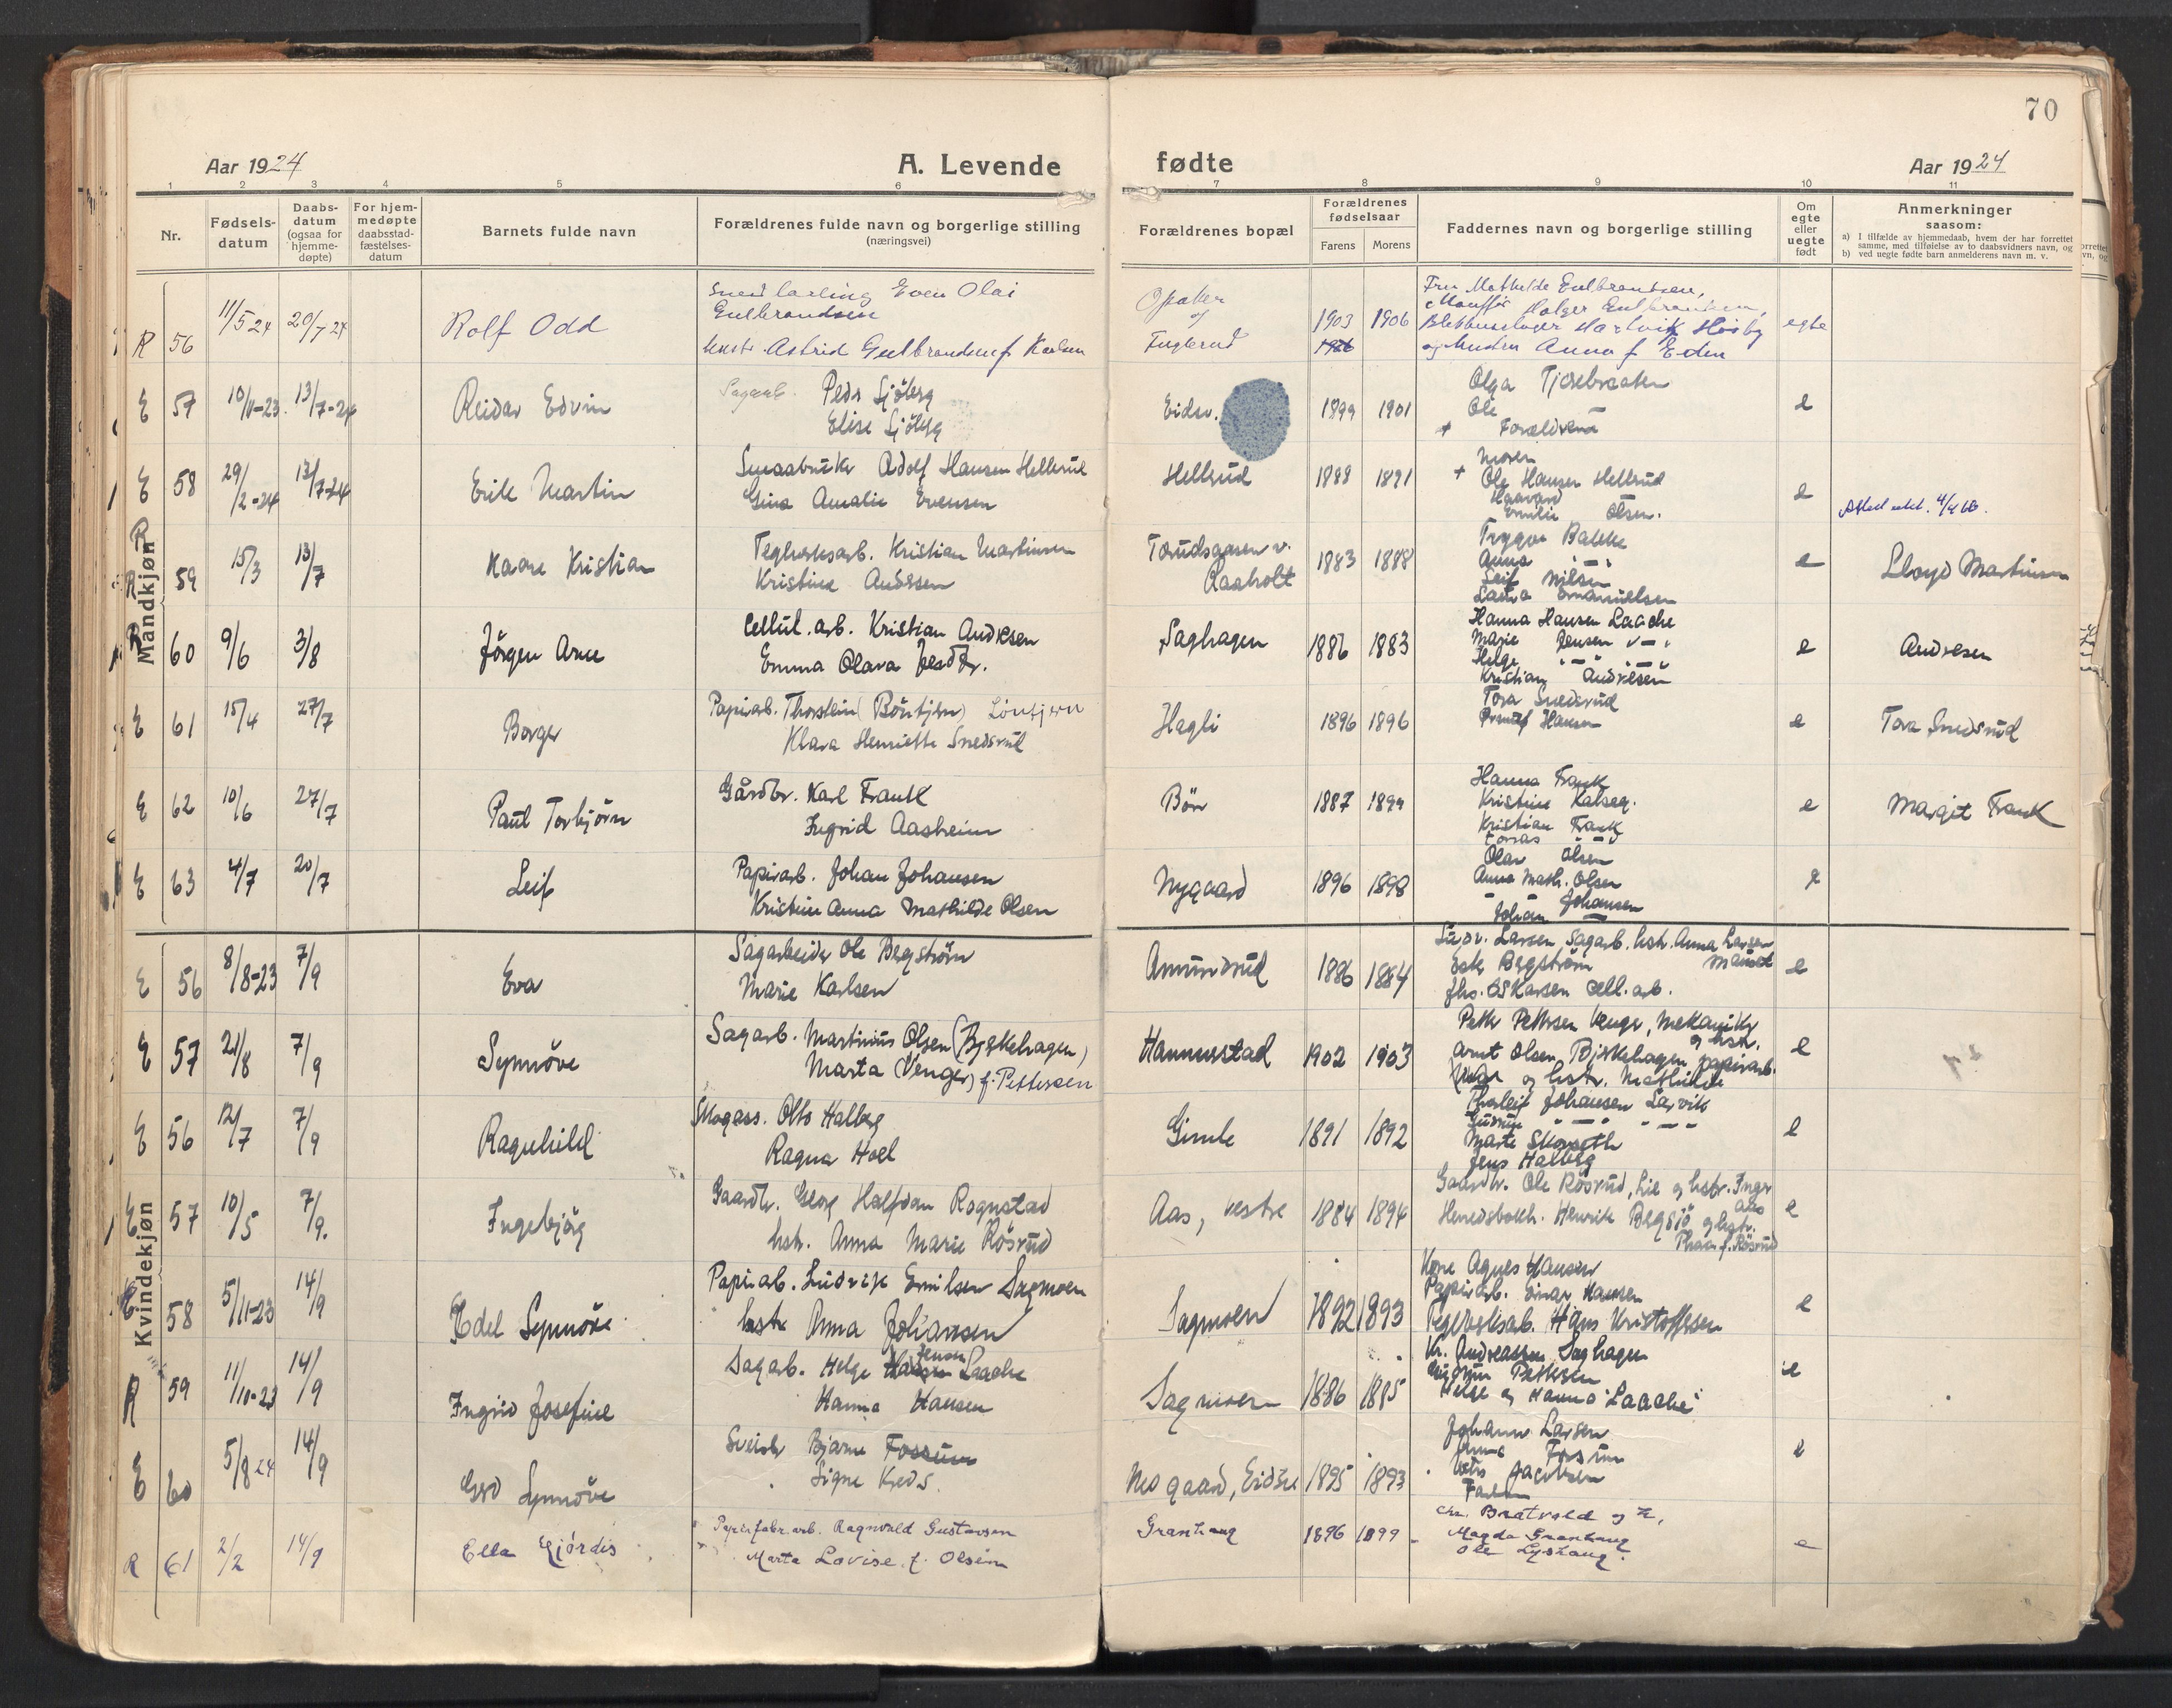 70
Aar 1924
A. Levende
fødte
Aar 1924
1 2 3 4 5 6 7 8 9 10 11
Nr.
Fødsels-
datum
Daabs-
datum
(ogsaa for
hjemme-
døpte)
For hjem-
medøpte
daabsstad-
fæstelses-
datum
Barnets fulde navn
Forældrenes fulde navn og borgerlige stilling
(næringsvei)
Forældrenes bopæl
Forældrenes
fødselsaar
Farens Morens
Faddernes navn og borgerlige stilling
Om
egte
eller
uegte
født
Anmerkninger
saasom:
a) I tilfælde av hjemmedaab, hvem der har forrettet
samme, med tilføielse av to daabsvidners navn, og
b) ved uegte fødte barn anmelderens navn m. v.
Mandkjøn
R 56 11/5 24 20/7 24 Rolf Odd
Even Olai
Gulbrandsen
Astrid Gulbrandsen f. Karlsen
og
1903 1906
1906
Fru Mathilde Gulbrandsen,
Holger Gulbrandsen,
Anna f. Eden
egte
E 57 10/11-23. 13/7-24 Reidar Edvin
Sagarb. Peder Sjöberg
Elise Sjöberg
Eidsv. 1899 1901
Olga Tjersbraaten
Ole
+ Forældrene
e
E 58 29/2-24 13/7-24 Erik Martin
Smaabruker Adolf Hansen Hellerud
Gina Amalie Evensen
Hellerud 1888 1891
Moren
+ Ole Hansen Hellerud
Haavard
Emilie Olsen.
e
R 59 15/3 13/7 Kaare Kristian
Teglverksarb. Kristian Martinsen
Kristine Andersen
Raaholt 1883 1888
Trygve Bakke
Anna -"-
Leif Nilsen
Emanuelsen
e
Lloyd Martinsen
R 60 9/6 3/8 Jörgen Arne
Cellul. arb. Kristian Andresen
Emma Olava
Saghagen 1886 1883
Hanna Hansen Laache
Marie Jensen "-"
Helge "-" "-"
Kristian Andresen
e
Andresen
E 61 15/4 27/7 Borger
Papirarb. Thorstein (Böntjern) Löntjern
Klara Henriette Snedsrud
Hagli 1896 1896
Tora Snedsrud
Hansen
e
Tora Snedsrud
E 62 10/6 27/7 Paul Torbjörn
Gårdbr. Karl Frank
Ingrid Aasheim
Bön 1887 1899
Hanna Frank
Kristine Kalseg.
Kristian Frank
e
Margit Frank
E 63 4/7 20/7 Leif
Papirarb. Johan Johansen
Kristine Anna Mathilde Olsen
Nygaard 1896 1898
Olav Olsen
Anna Math. Olsen
Johan Johansen
e
Kvindekjøn
E 56 8/8-23 7/9 Eva
Sagarbeider Ole Bergström
Marie Karlsen
Amundrud 1886 1884
Larsen Sagarb. hstr. Anna Larsen
Bergström
Jhs. Oskarsen Cell. arb.
e
E 57 21/8 7/9 Synnöve
Sagarb. Martinius Olsen (Bjerkehagen)
Marta (Venger) f. Pettersen
Hammerstad 1902 1903
Petter Pettersen Venger, mekaniker
og hstr.
Arnt Olsen Bjerkehagen papirarb.
og hstr. Mathilde
e
E 56 12/7 7/9 Ragnhild
Skogass. Otto Halberg
Ragna Hoel
Gimle 1891 1892
Thorleif Johansen Larvik
Gudrun "-" "-"
Marte
Jens Halberg
e
E 57 10/5 7/9. Ingebjörg
Gaardbr. Georg Halfdan Rognstad
hstr. Anna Marie Rösrud
Aas, vestre 1884 1894
Gaardbr. Ole Rösrud, Lie og hstr. Inger
Herredsbokh. Henrik Bergsjö og hstr.
f. Rösrud
e
E 58 5/11-23 14/9 Edel Synnöve
Papirarb. Ludvik Emilsen Sagmoen
hstr Anna Johansen
Sagmoen 1892 1893
Kone Agnes Hansen
Papirarb. Einar Hansen
Teglverksarb. Hans Kristoffersen
e
R 59 11/10-23 14/9 Ingrid Josefine
Sagarb. Helge Hansen Jensen Laache
Hanna Hansen
Sagmoen 1886 1885
Kr. Andreassen Saghagen
Gudrun Pettersen
Helge og Hanna Laache
e
E 60 5/8 24 14/9 Gerd Synnöve
Bjarne Fossum
Signe
Nedgaard, Eidsv 1895 1893
Johann Larsen
Anna Fossum
Jacobsen
e
R 61 2/2 14/9 Ella Hjördis
Papirfabr.arb. Ragnvald Gustavsen
Marta Lovise f. Olsen
Granhaug 1896 1899
Chr. Bratvold og h,
Magda Granhaug
Ole Lyshaug.
e